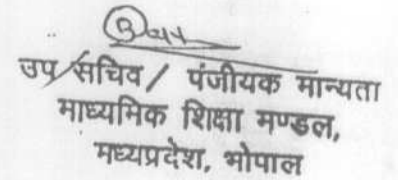 उप सचिव / पंजीयक मान्यता
माध्यमिक शिक्षा मण्डल,
मध्यप्रदेश, भोपाल